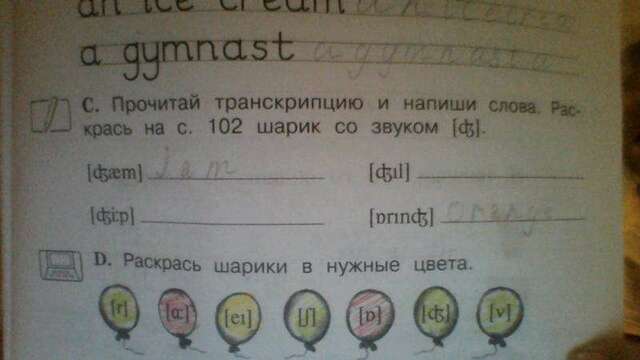 an ice cream
a gymnast a gymnast
C. Прочитай транскрипцию и напиши слова. Рас-
крась на с. 102 шарик со звуком [ʤ].
[ʤæm] Jam [ʤıl]
[ʤi:p] [ɒrınʤ] orange
D. Раскрась шарики в нужные цвета.
[r] [ɑ:] [eı] [ʃ] [ɒ] [ʤ] [v]